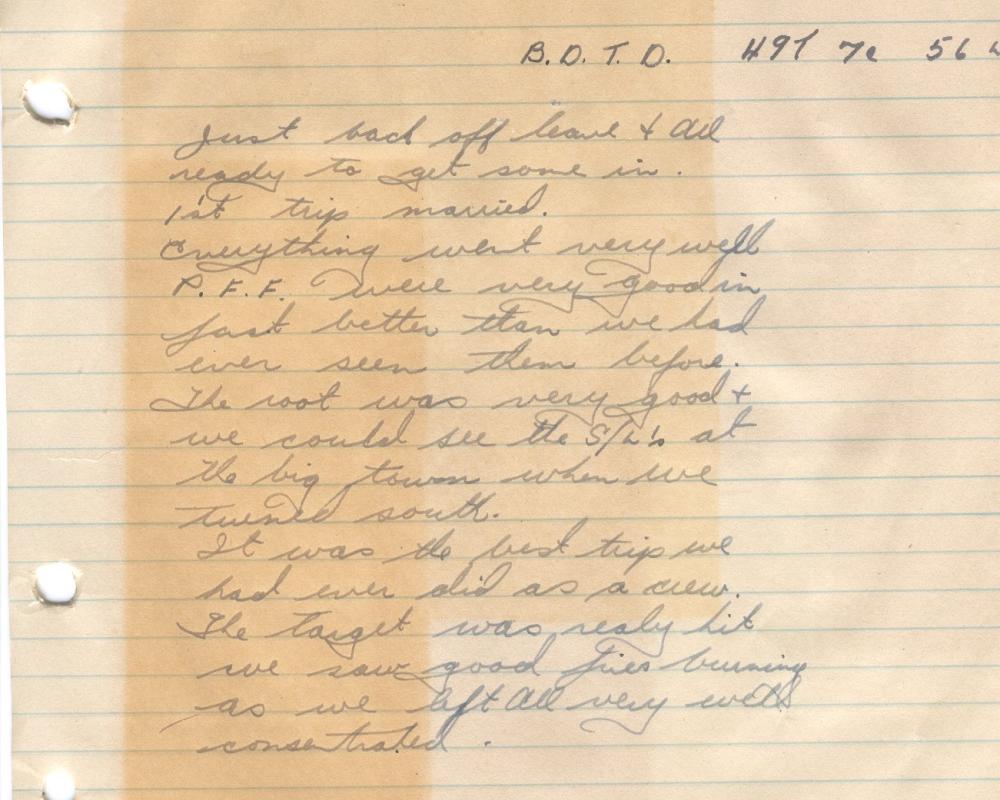 B.D.T.D. H91 7c 56
Just back off leave & All
ready to get some in.
1st trip married.
Everything went very well
P.F.F. were very good in
fact better than we had
ever seen them before.
The root was very good &
we could see the S/L's at
the big town when we
turned south.
It was the best trip we
had ever did as a crew.
The target was realy hit
we saw good fires burning
as we left All very well
consentrated.